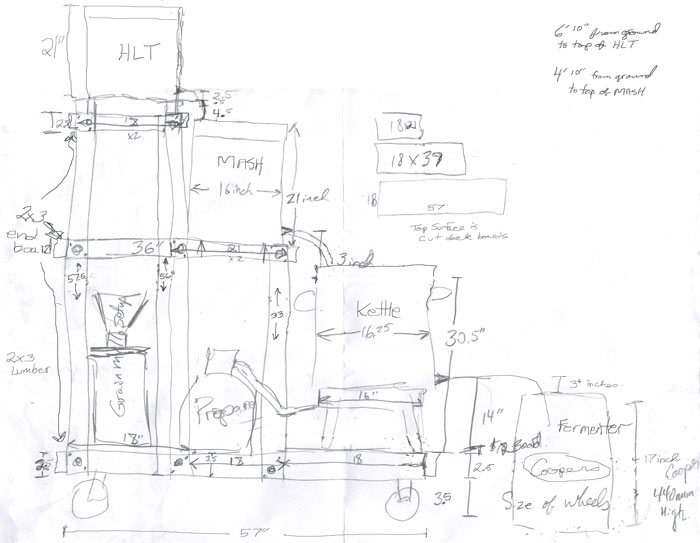 21"
HLT
6' 10" from ground
to top of HLT
4' 10" from ground
to top of MASH
2.5
4.5
18
x2
MASH
16inch
21inch
18x21
18 x 39
18
57
Top Surface is
Cut deck boards
2x3
end
board
36"
21
x2
3 inch
Kettle
16.25
30.5"
33
2x3
Lumber
Grain
Propane
16"
14"
3" inches
Fermenter
Coopers
Size of wheels
17inch
Cooper
440mm
High
18"
3.5
18
18
2.5
3.5
57"